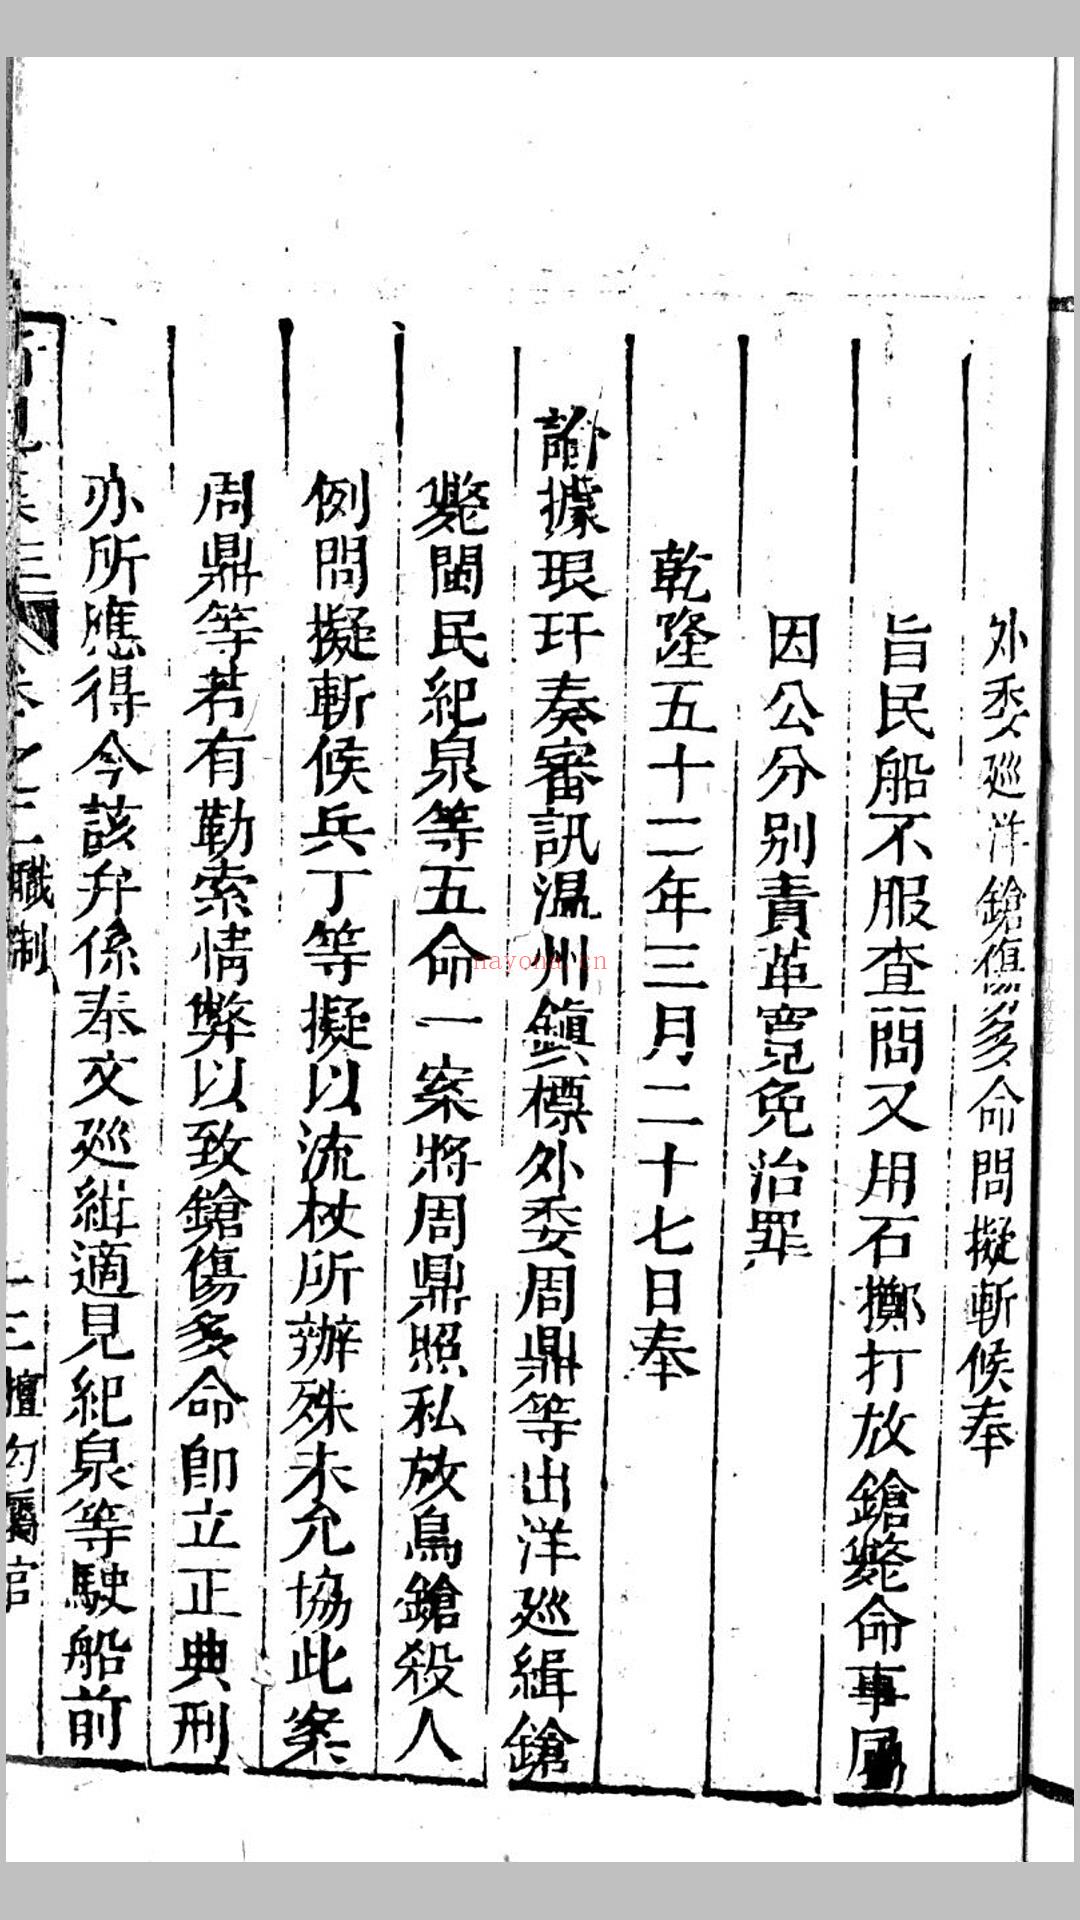 外委巡洋鎗傷多命問擬斬候奉
旨民船不服查問又用石擲打放鎗斃命事屬
因公分别責革寬免治罪
乾隆五十二年三月二十七日奉
諭據琅玕奏審訊温州鎮標外委周鼎等出洋巡緝鎗
斃閩民紀泉等五命一案將周鼎照私放鳥鎗殺人
例問擬斬候兵丁等擬以流杖所辦殊未允協此案
周鼎等若有勒索情弊以致鎗傷多命卽立正典刑
亦所應得今該弁係奉文巡緝適見紀泉等駛船前
卷之二職制
擅勾屬官
nayona.cn